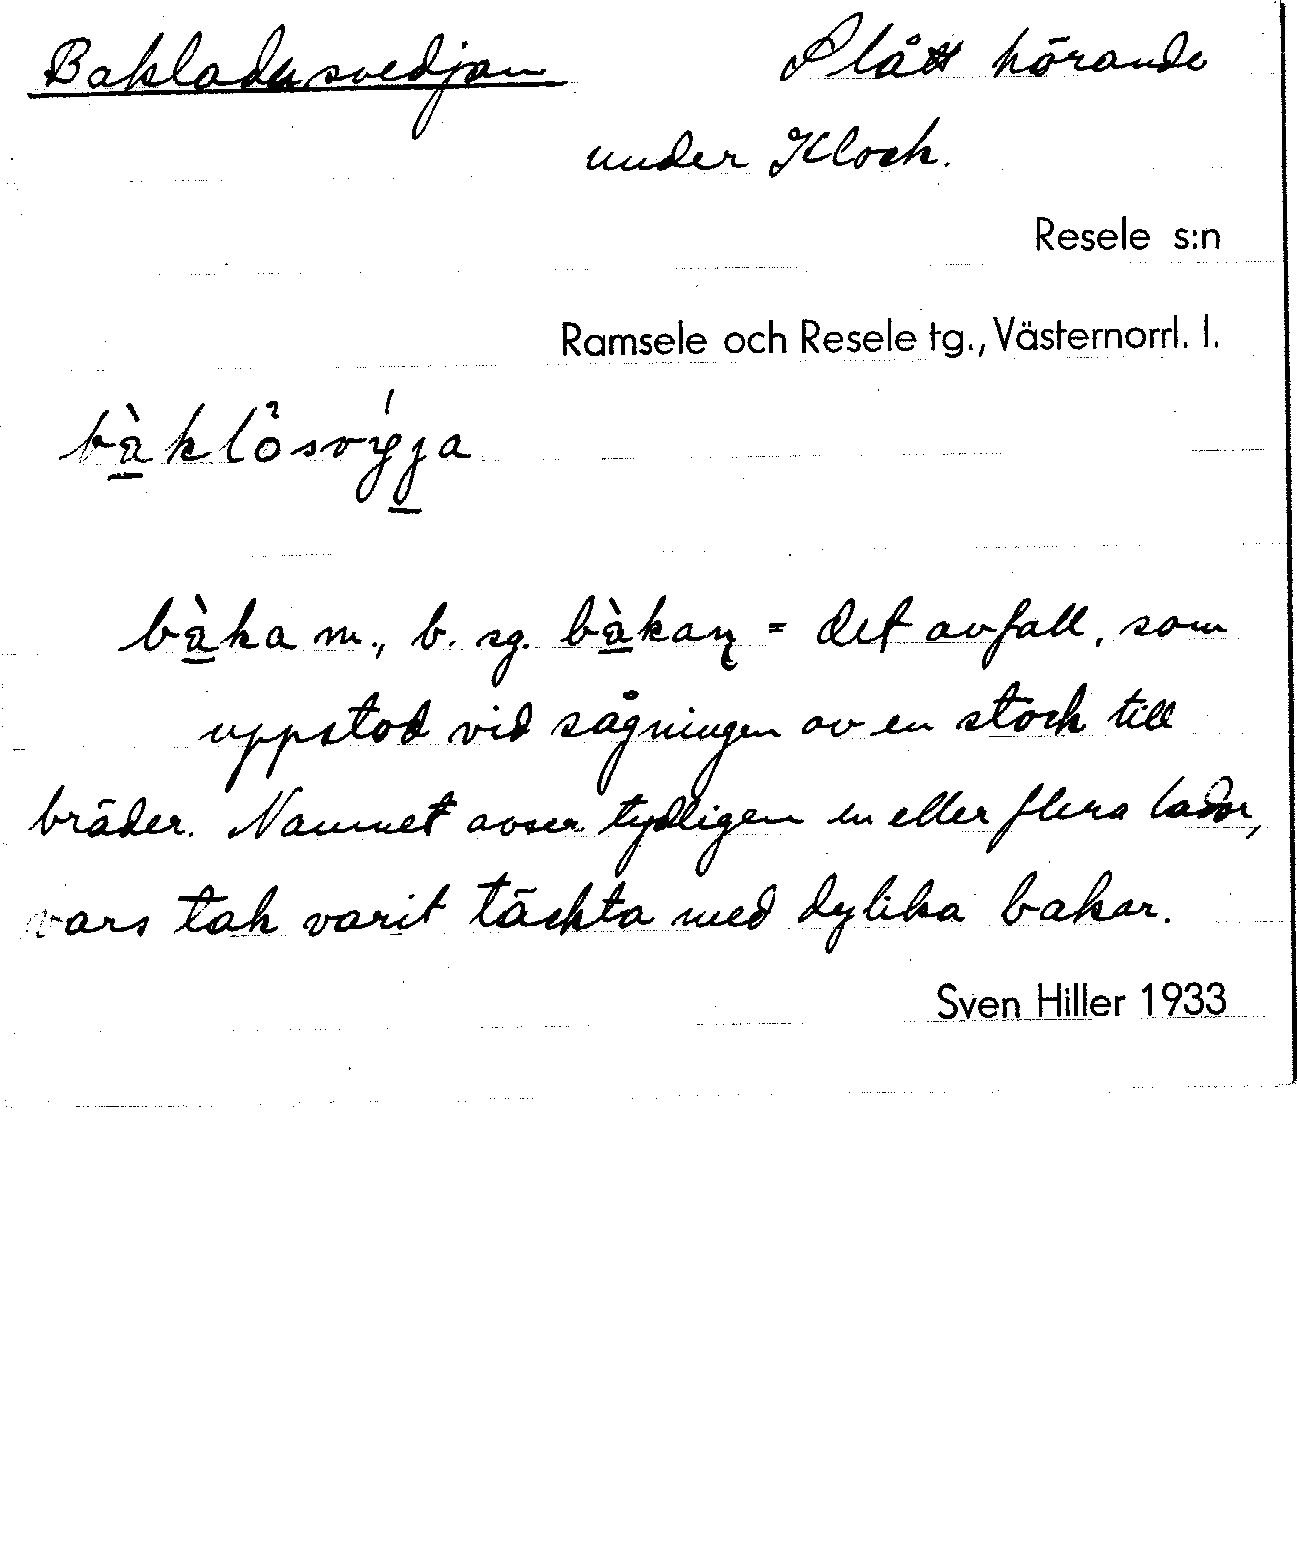 Bakladusvedjan Slått hörande
under Klock.
Resele s:n
Ramsele och Resele tg., Västernorrl. l.
bàklösvýgja
bàka m., b. sg. bàkaɳ = det avfall, som
uppstod vid sågningen av en stock till
bräder. Namnet avser tydligen en eller flera lador,
vars tak varit täckta med dylika bakar.
Sven Hiller 1933